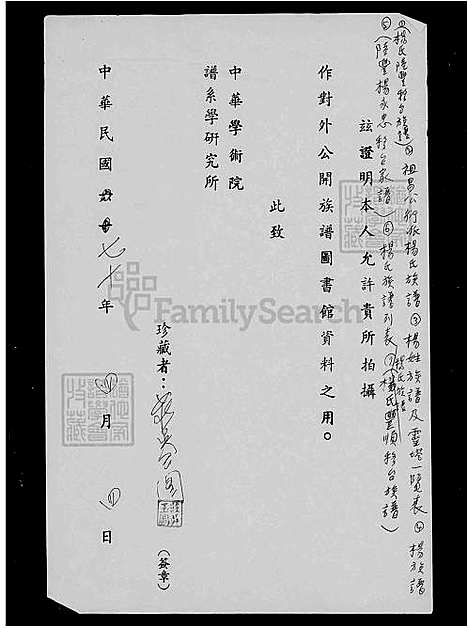 ①(楊氏陸豐移台族譜)②祖昌公衍派楊氏族譜③楊姓族譜及靈塔一覽表④楊族譜
⑤(陸豐楊永忠移台家譜)⑥楊氏族譜列表⑦(楊氏豐順移台族譜)
楊氏族譜
玆證明本人允許貴所拍攝
作對外公開族譜圖書館資料之用。
此致
中華學術院
譜系學研究所
珍藏者：
(簽章)
中華民國 七十年 四月 日
FamilySearch